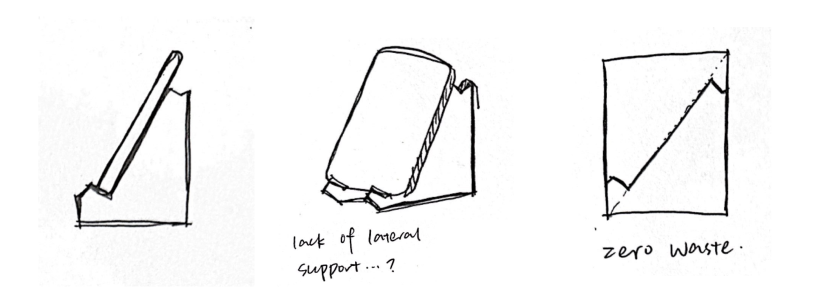 lack of lateral
support...?
zero waste.